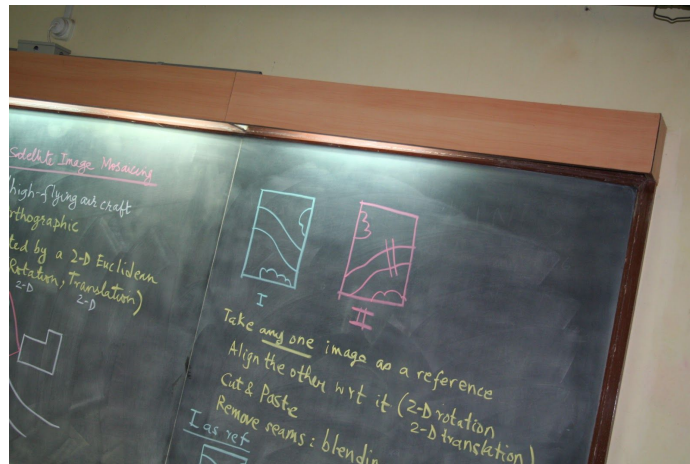 Satellite Image Mosaicing
high-flying air craft
orthographic
ted by a 2-D Euclidean
Rotation, Translation)
2-D 2-D
I
II
Take any one image as a reference
Align the other wrt it (2-D rotation
2-D translation)
Cut & Paste
Remove seams: blendin
I as ref